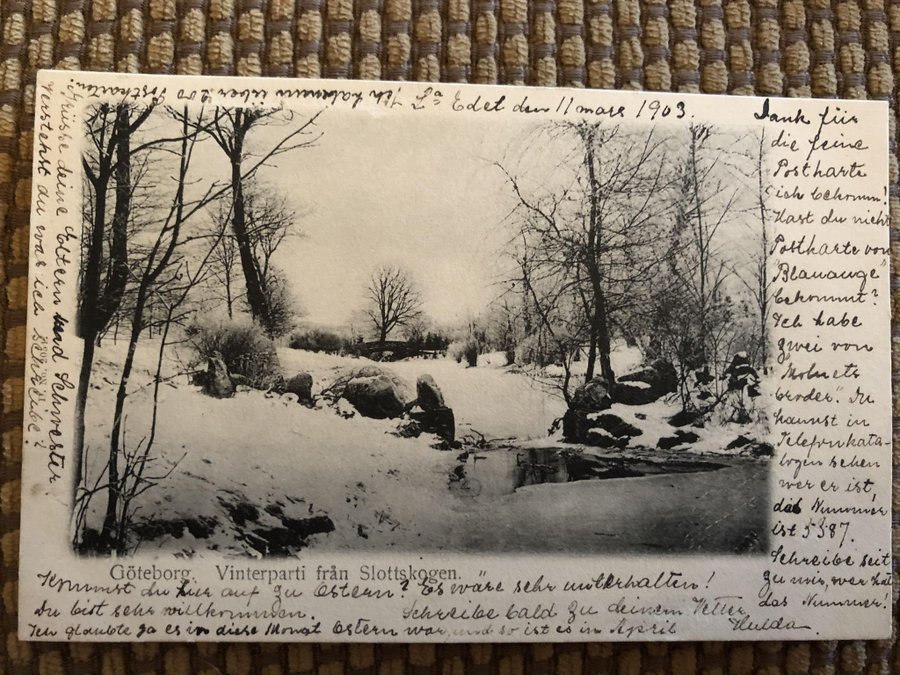 Edet den 11 mars 1903.
Dank für
die feine
Postkarte
ich bekomm!
Hast du nicht
Postkarte von
"Blauauge"
bekommt?
Ich habe
zwei von
"Molnets
broder". Du
kannst in
Telefonkata-
logen sehen
wer er ist,
das Nummer
ist 5387.
Schreibe seit
zu mir, wer hat
das Nummer!
Göteborg. Vinterparti från Slottskogen.
Kommst du hier auf zu Ostern? Es wäre sehr unterhalten!
Du bist sehr willkommen. Schreibe bald zu deinem Vetter
Ich glaubte ja es in diese Monat Ostern war, und so ist es in April Hulda.
Verstehst du was ich schreibe?
Grüsse deine Eltern und Schwester!
Ich bekommen über 200 Postkarten